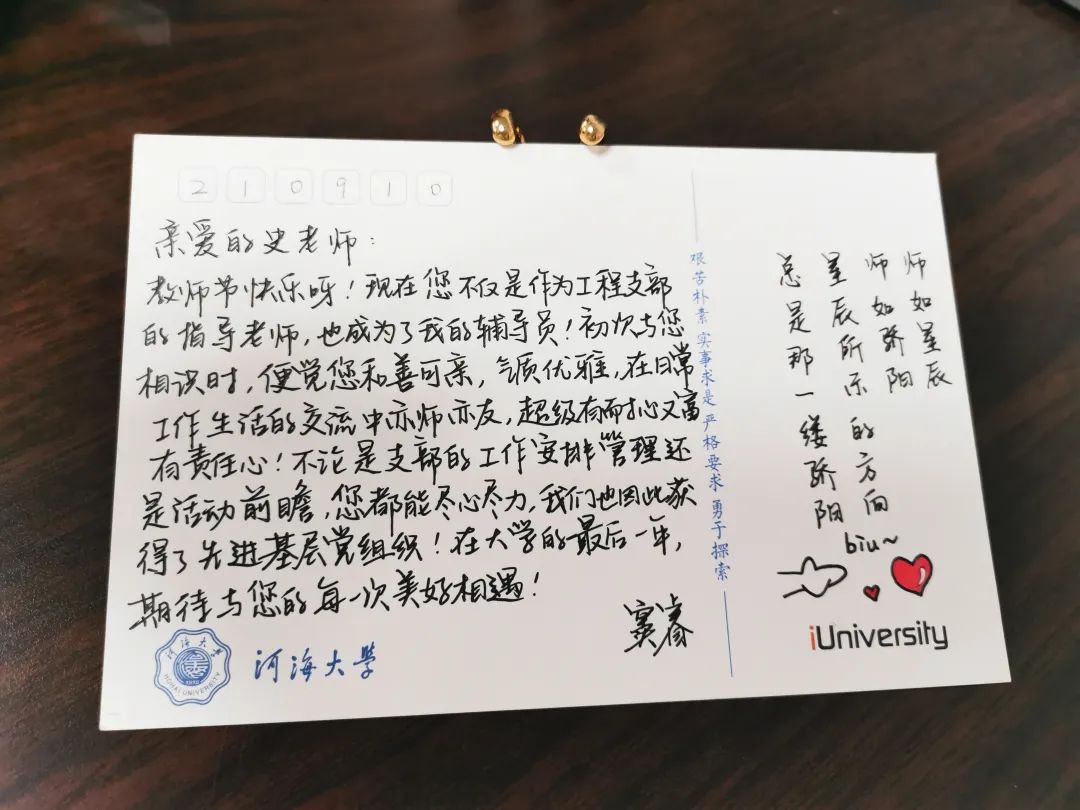 210910
亲爱的史老师：
教师节快乐呀！现在您不仅是作为工程支部
的指导老师，也成为了我的辅导员！初次与您
相识时，便觉您和善可亲，气质优雅，在日常
工作生活的交流中亦师亦友，超级有耐心又富
有责任心！不论是支部的工作安排管理还
是活动前瞻，您都能尽心尽力，我们也因此获
得了先进基层党组织！在大学的最后一年，
期待与您的每一次美好相遇！
河海大学
HOHAI UNIVERSITY
1915
河海大學
艰苦朴素 实事求是 严格要求 勇于探索
师如星辰
师如骄阳
星辰所示的方向
总是那一缕骄阳
biu~
iUniversity